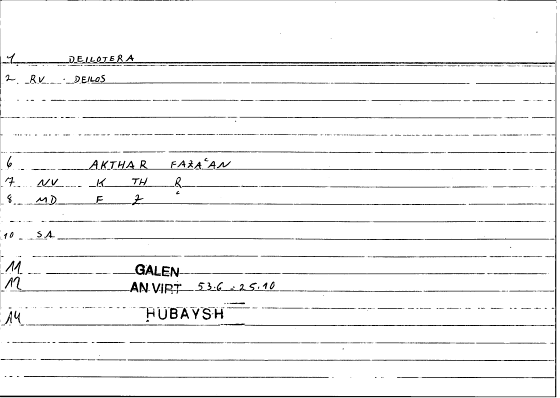 1 DEILOTERA
2 RV - DEILOS
6 AKTHAR FAZAʿAN
7 NV K TH R
8 MD F Z ʿ
10 SA
11 GALEN
12 AN VIRT 53.6 - 25.10
14 ḤUBAYSH